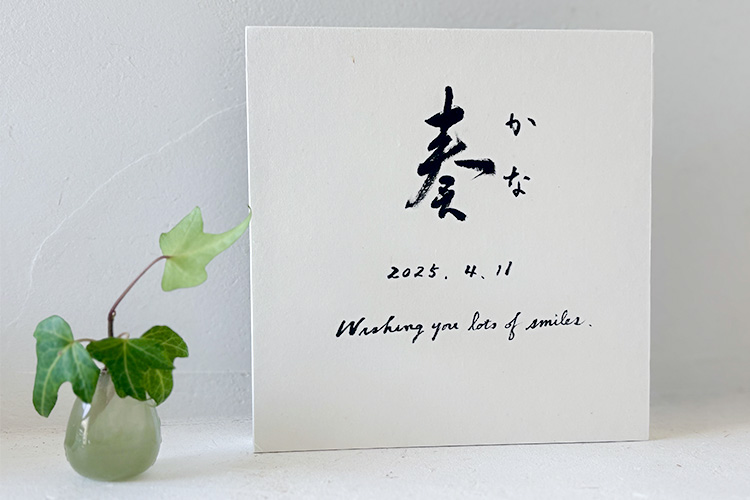 奏
かな
2025. 4. 11
Wishing you lots of smiles.